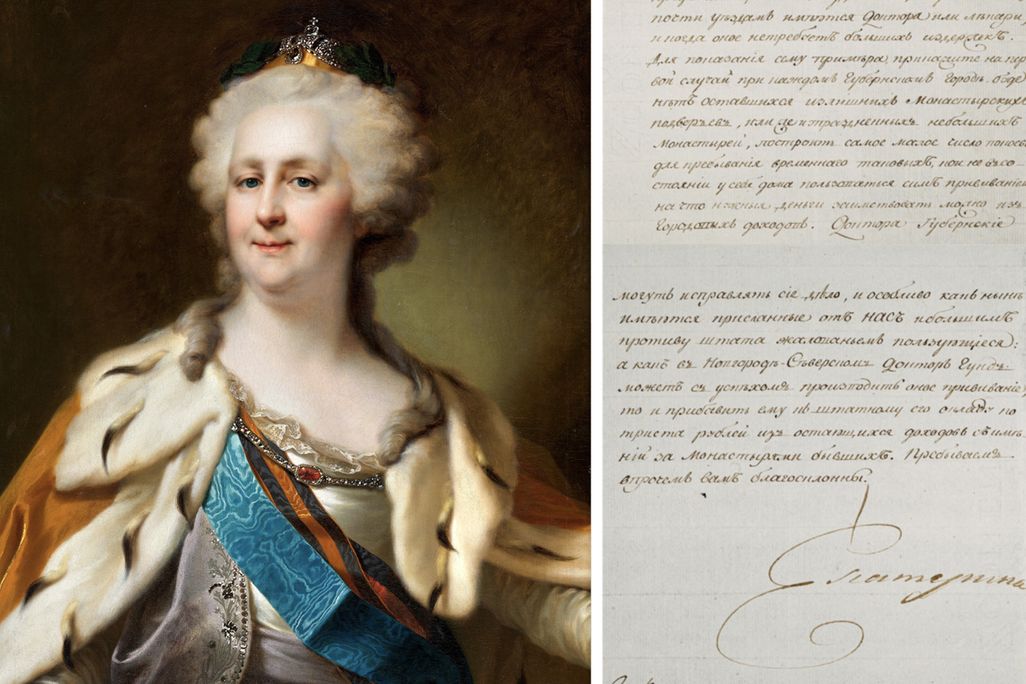 ности уѣздамъ имѣются Доктора или лѣкари,
иногда оное не требуетъ большихъ издержекъ.
Для показанія сему примѣра, прикажите на пер
вой случай при каждомъ Губернскомъ Городѣ
изъ оставшихся излишнихъ Монастырскихъ
подворьевъ, или же и праздненныхъ небольшихъ
Монастырей, построить самое малое число
для пребыванія временнаго таковыхъ, кои не въ со-
стояніи у себя дома пользоваться симъ прививаніемъ
на что нужныя деньги заимствовать можно изъ
Городовыхъ доходовъ. Доктора Губернскіе
могутъ исправлять сіе дѣло, и особливо какъ нынѣ
имѣются присланные отъ НАСЪ небольшимъ
противу штата жалованьемъ пользующіеся:
а какъ въ Новгородѣ-Сѣверскомъ Докторъ Гундъ
можетъ съ успѣхомъ производить оное прививаніе,
то и прибавить ему къ штатному его окладу по
триста рублей изъ оставшихся доходовъ съ имѣ-
ній за Монастырями бывшихъ. Пребываемъ
впрочемъ вамъ благосклонны.
Екатерина